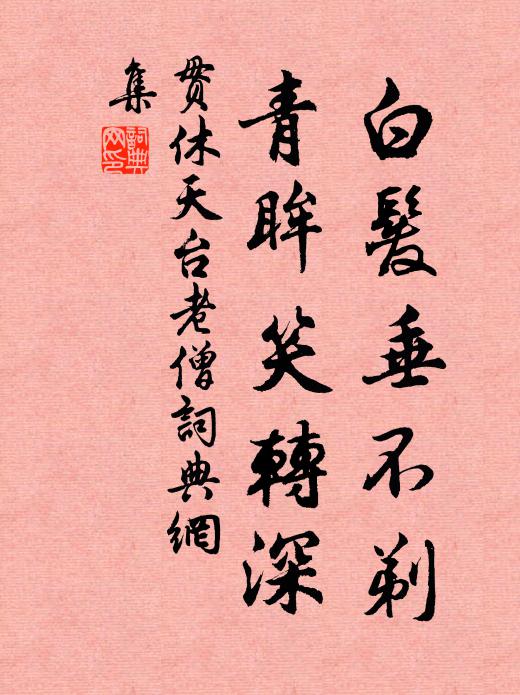 白髮垂不剃
青眸笑轉深
貫休天台老僧詞典網
集
詞典網印